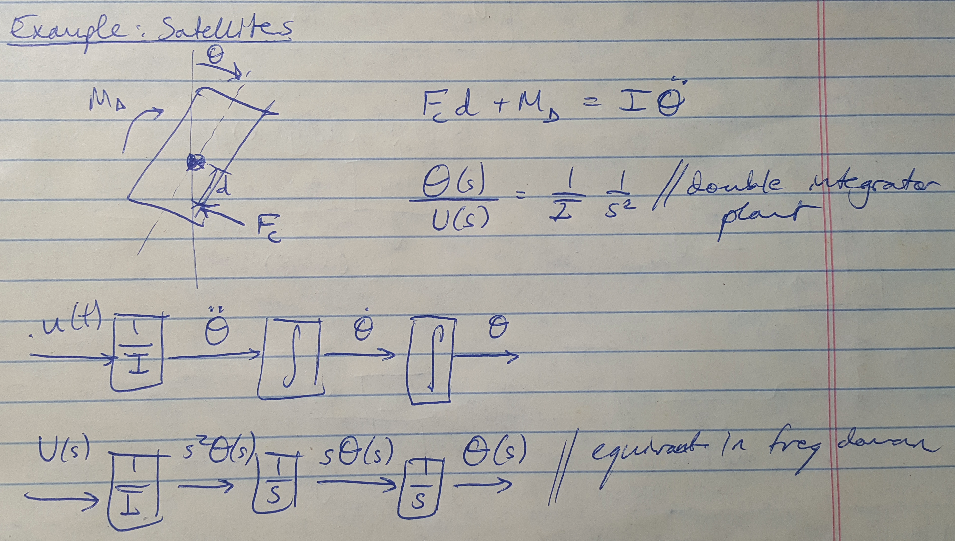 Example: Satellites
θ
M_D
d
F_c
F_c d + M_D = I θ̈
Θ(s)/U(s) = 1/I 1/s² // double integrator
plant
u(t) 1/I θ̈ ∫ θ̇ ∫ θ
U(s) 1/I s²Θ(s) 1/s sΘ(s) 1/s Θ(s) // equivalent in freq domain